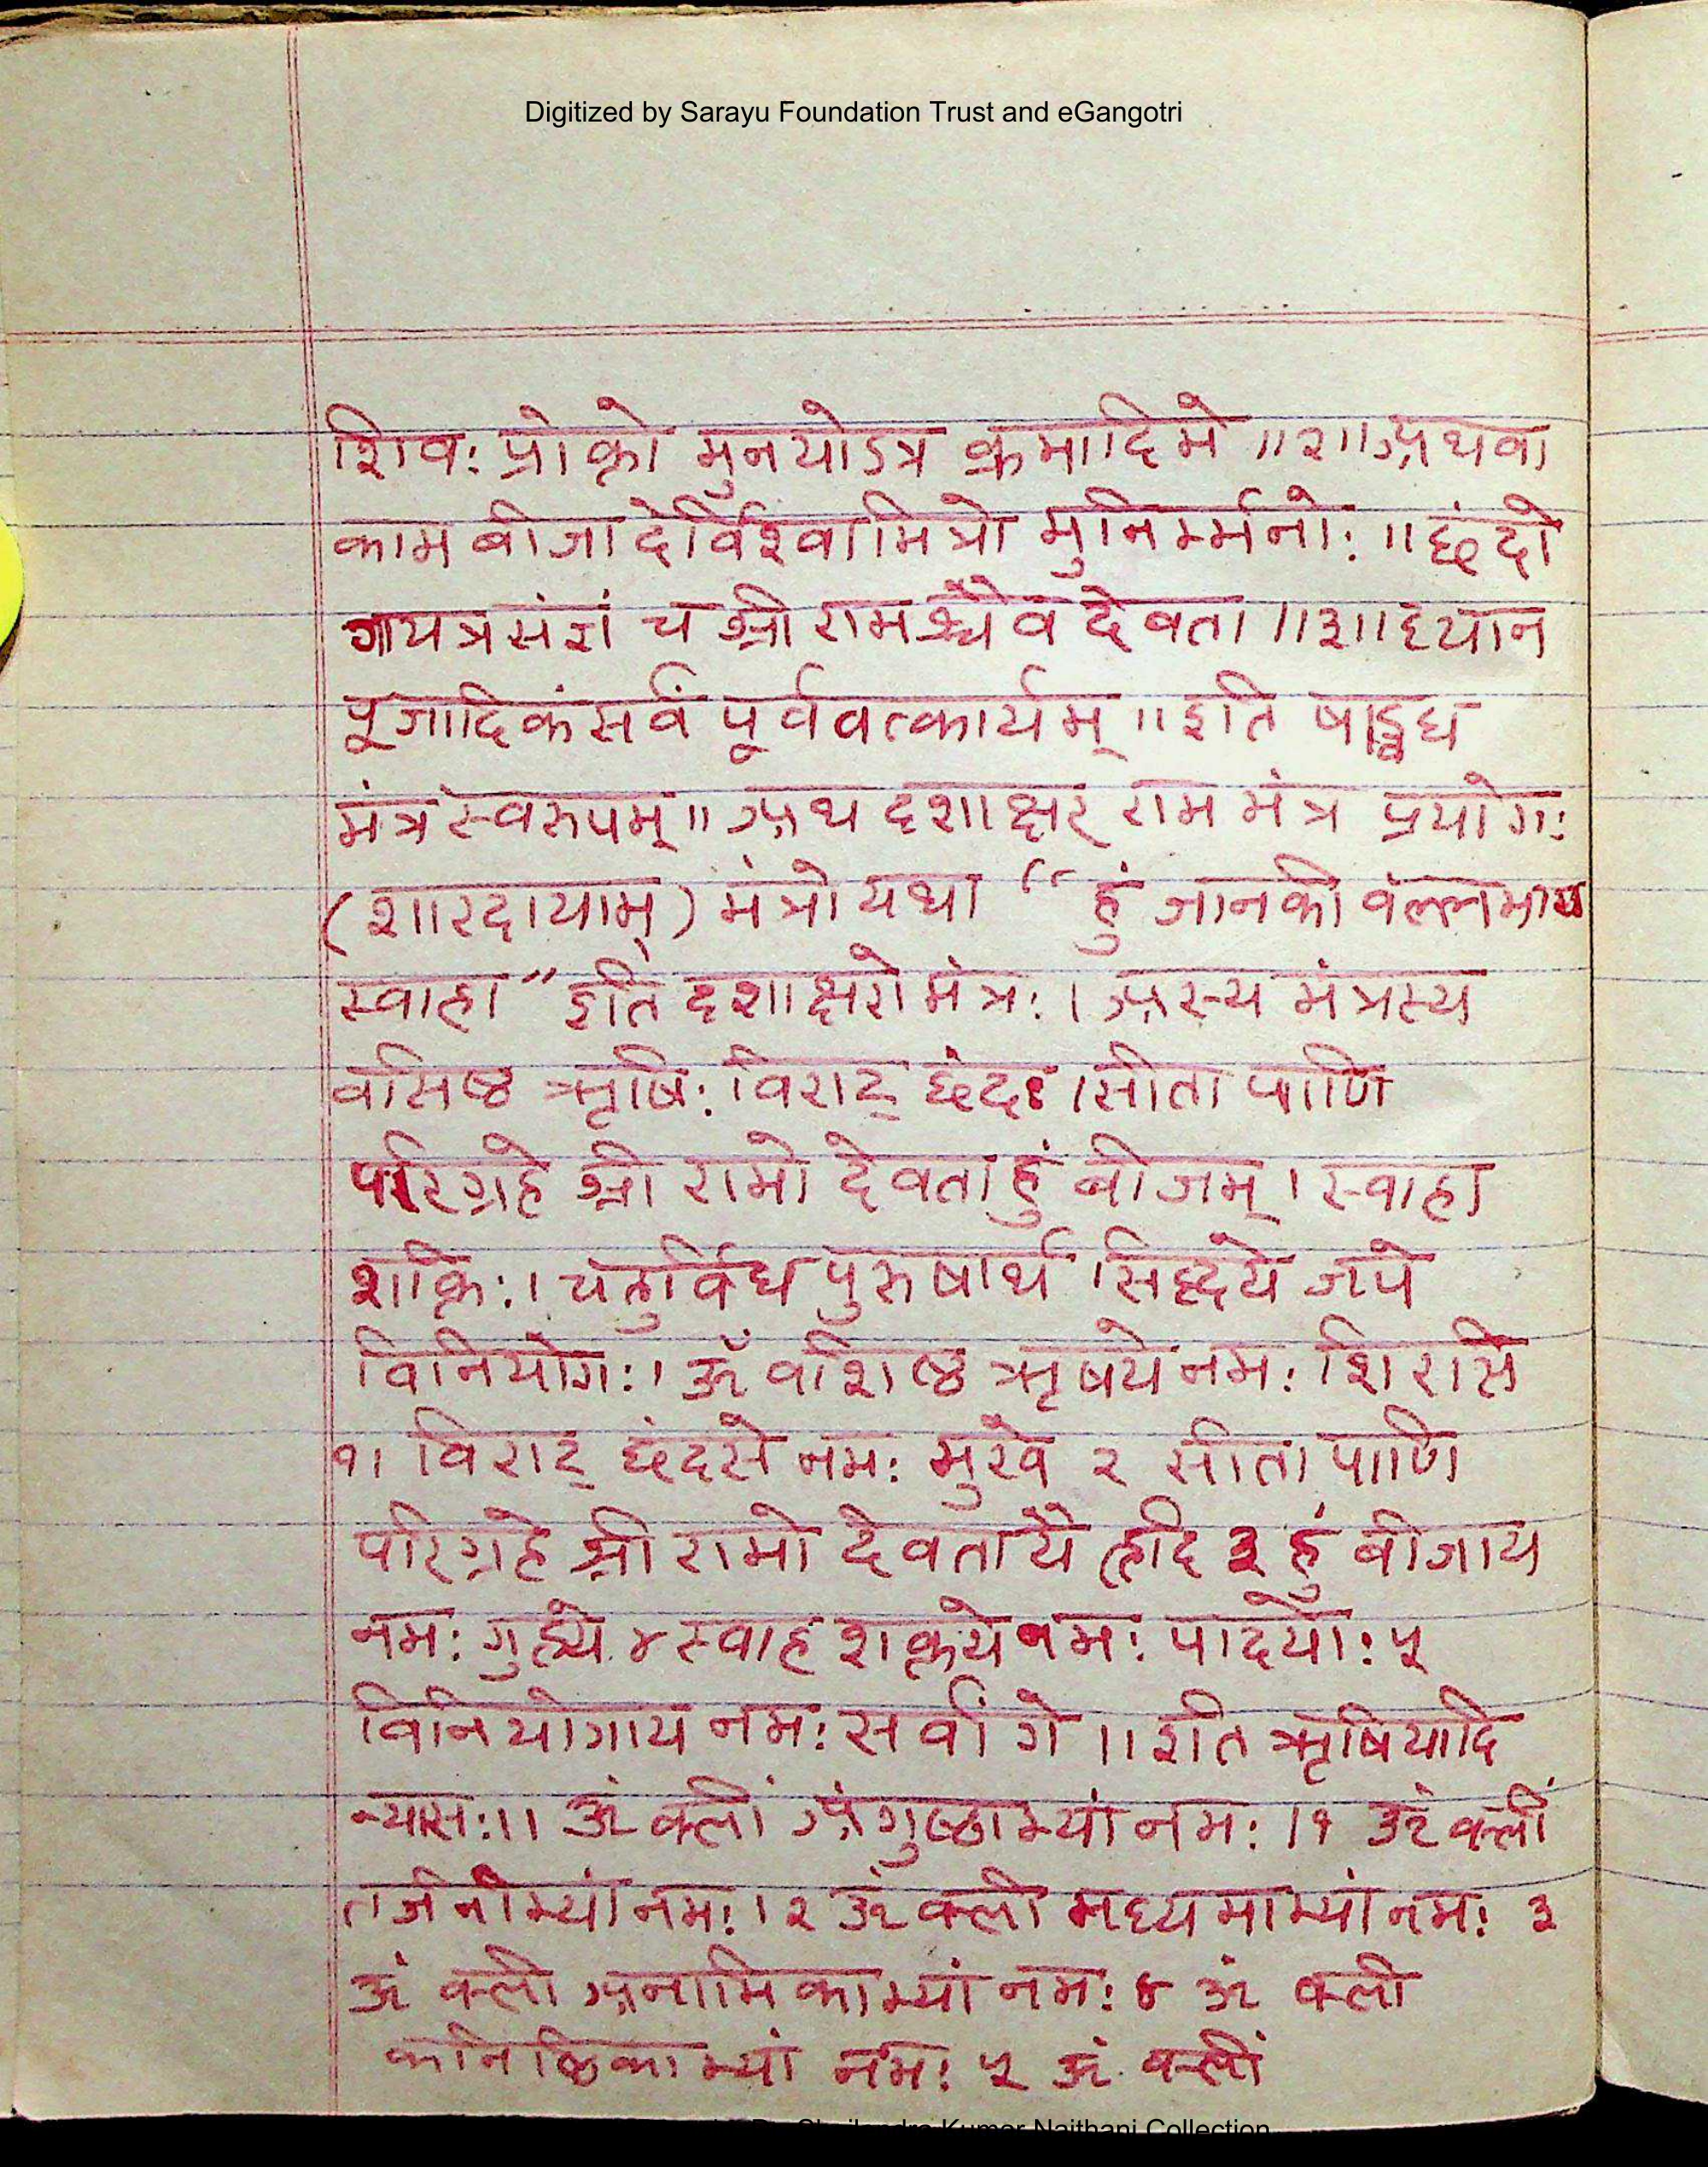 Digitized by Sarayu Foundation Trust and eGangotri
शिवः प्रोक्तो मुनयोऽत्र क्रमादिमे ॥२॥ अथवा
काम बीजादेर्विश्वामित्रो मुनिर्म्मनोः ॥ छंदो
गायत्रसंज्ञं च श्री रामश्चैव देवता ॥३॥ ध्यान
पूजादिकं सर्वं पूर्ववत्कार्यम् ॥ इति षाड्विध
मंत्र स्वरुपम् ॥ अथ दशाक्षर् राम मंत्र प्रयोगः
(शारदायाम्) मंत्रो यथा “ हुं जानकी वल्लभाय
स्वाहा ” इति दशाक्षरो मंत्रः । अस्य मंत्रस्य
वसिष्ठ ऋषिः । विराट् छंदः । सीता पाणि
परिग्रहे श्री रामो देवता हुं बीजम् । स्वाहा
शक्तिः । चतुर्विध पुरुषार्थ सिद्धये जपे
विनियोगः । ॐ वशिष्ठ ऋषये नमः शिरसि
१। विराट् छंदसे नमः मुखे २ सीता पाणि
परिग्रहे श्री रामो देवतायै हृदि ३ हुं बीजाय
नमः गुह्ये ४ स्वाह शक्तये नमः पादयोः ५
विनियोगाय नमः सर्वांगे ॥ इति ऋषियादि
न्यासः ॥ ॐ क्लीं अंगुष्ठाभ्यां नमः । १ ॐ क्लीं
तर्जनीभ्यां नमः । २ ॐ क्ली मध्यमाभ्यां नमः ३
ॐ क्ली अनामिकाभ्यां नमः ४ ॐ क्ली
कनिष्ठिकाभ्यां नमः ५ ॐ क्लीं
Kumar Naithani Collection